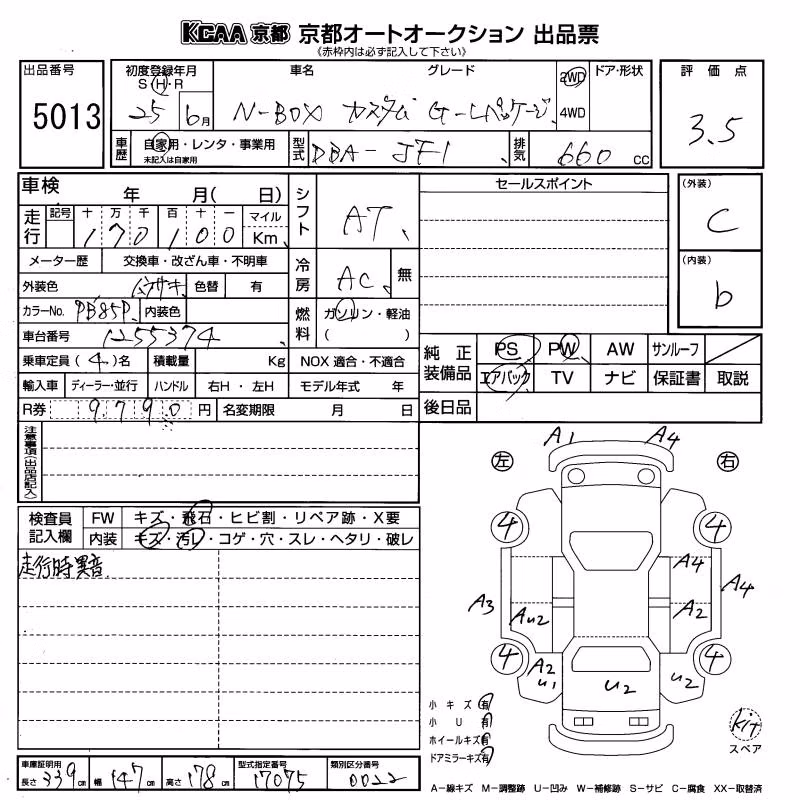 KCAA 京都 京都オートオークション 出品票
《赤枠内は必ず記入して下さい》
出品番号 5013
初度登録年月 S・H・R 25 年 6月
車名 N-BOX カスタム グレード G-Lパッケージ
2WD 4WD ドア・形状
評価点 3.5
車歴 自家用・レンタ・事業用 未記入は自家用
型式 DBA-JF1 排気 660 cc
車検 年 月( 日)
シフト AT
セールスポイント
(外装) C
走行 記号 十 万 千 百 十 一 マイル
170100 Km
メーター歴 交換車・改ざん車・不明車
冷房 AC 無
(内装) b
外装色 ムラサキ 色替 有
カラーNo. PB85P 内装色
燃料 ガソリン・軽油 ( )
車台番号 1255374
純正装備品 PS PW AW サンルーフ
エアバック TV ナビ 保証書 取説
乗車定員 (4)名 積載量 Kg NOX 適合・不適合
輸入車 ディーラー・並行 ハンドル 右H・左H モデル年式 年
R券 9790 円 名変期限 月 日
後日品
注意事項(出品店記入)
検査員記入欄 FW キズ・飛石・ヒビ割・リペア跡・X要
内装 キズ・汚レ・コゲ・穴・スレ・ヘタリ・破レ
走行時異音
左 右
A1 A4
4 4
A4 A4
A3 AU2 A2
4 4
A2 U1 U2 U2
小キズ 有
小U 有
ホイールキズ 有
ドアミラーキズ 有
kit
スペア
車庫証明用 長さ 339 cm 幅 147 cm 高さ 178 cm
型式指定番号 17075 類別区分番号 0022
A-線キズ M-調整跡 U-凹み W-補修跡 S-サビ C-腐食 XX-取替済